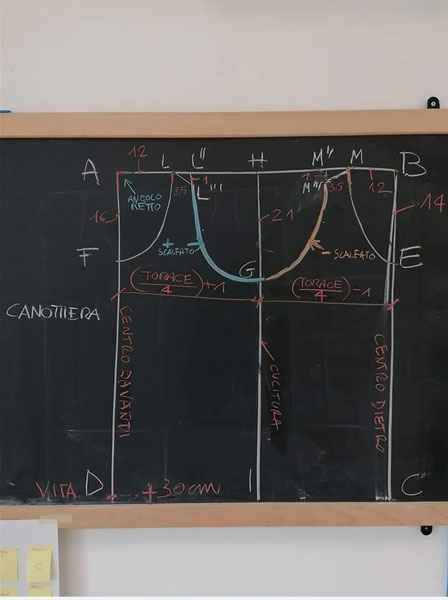 A 12 L L'' H M'' M B
1 L''' 3,5 1 M''' 3,5 12
ANGOLO
RETTO
16 21 14
F + SCALFATO G - SCALFATO E
(TORACE/4)+1 (TORACE/4)-1
CANOTTIERA
CENTRO DAVANTI
CUCITURA
CENTRO DIETRO
VITA D +30cm I C